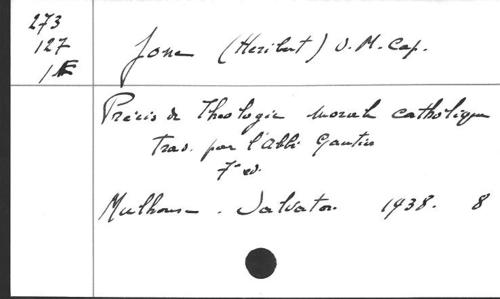 273
127
1
Jone (Heribert) O. M. Cap.
Précis de Theologie morale catholique
trad. par l'abbé Gautier
7e ed.
Mulhouse. Salvator. 1938. 8